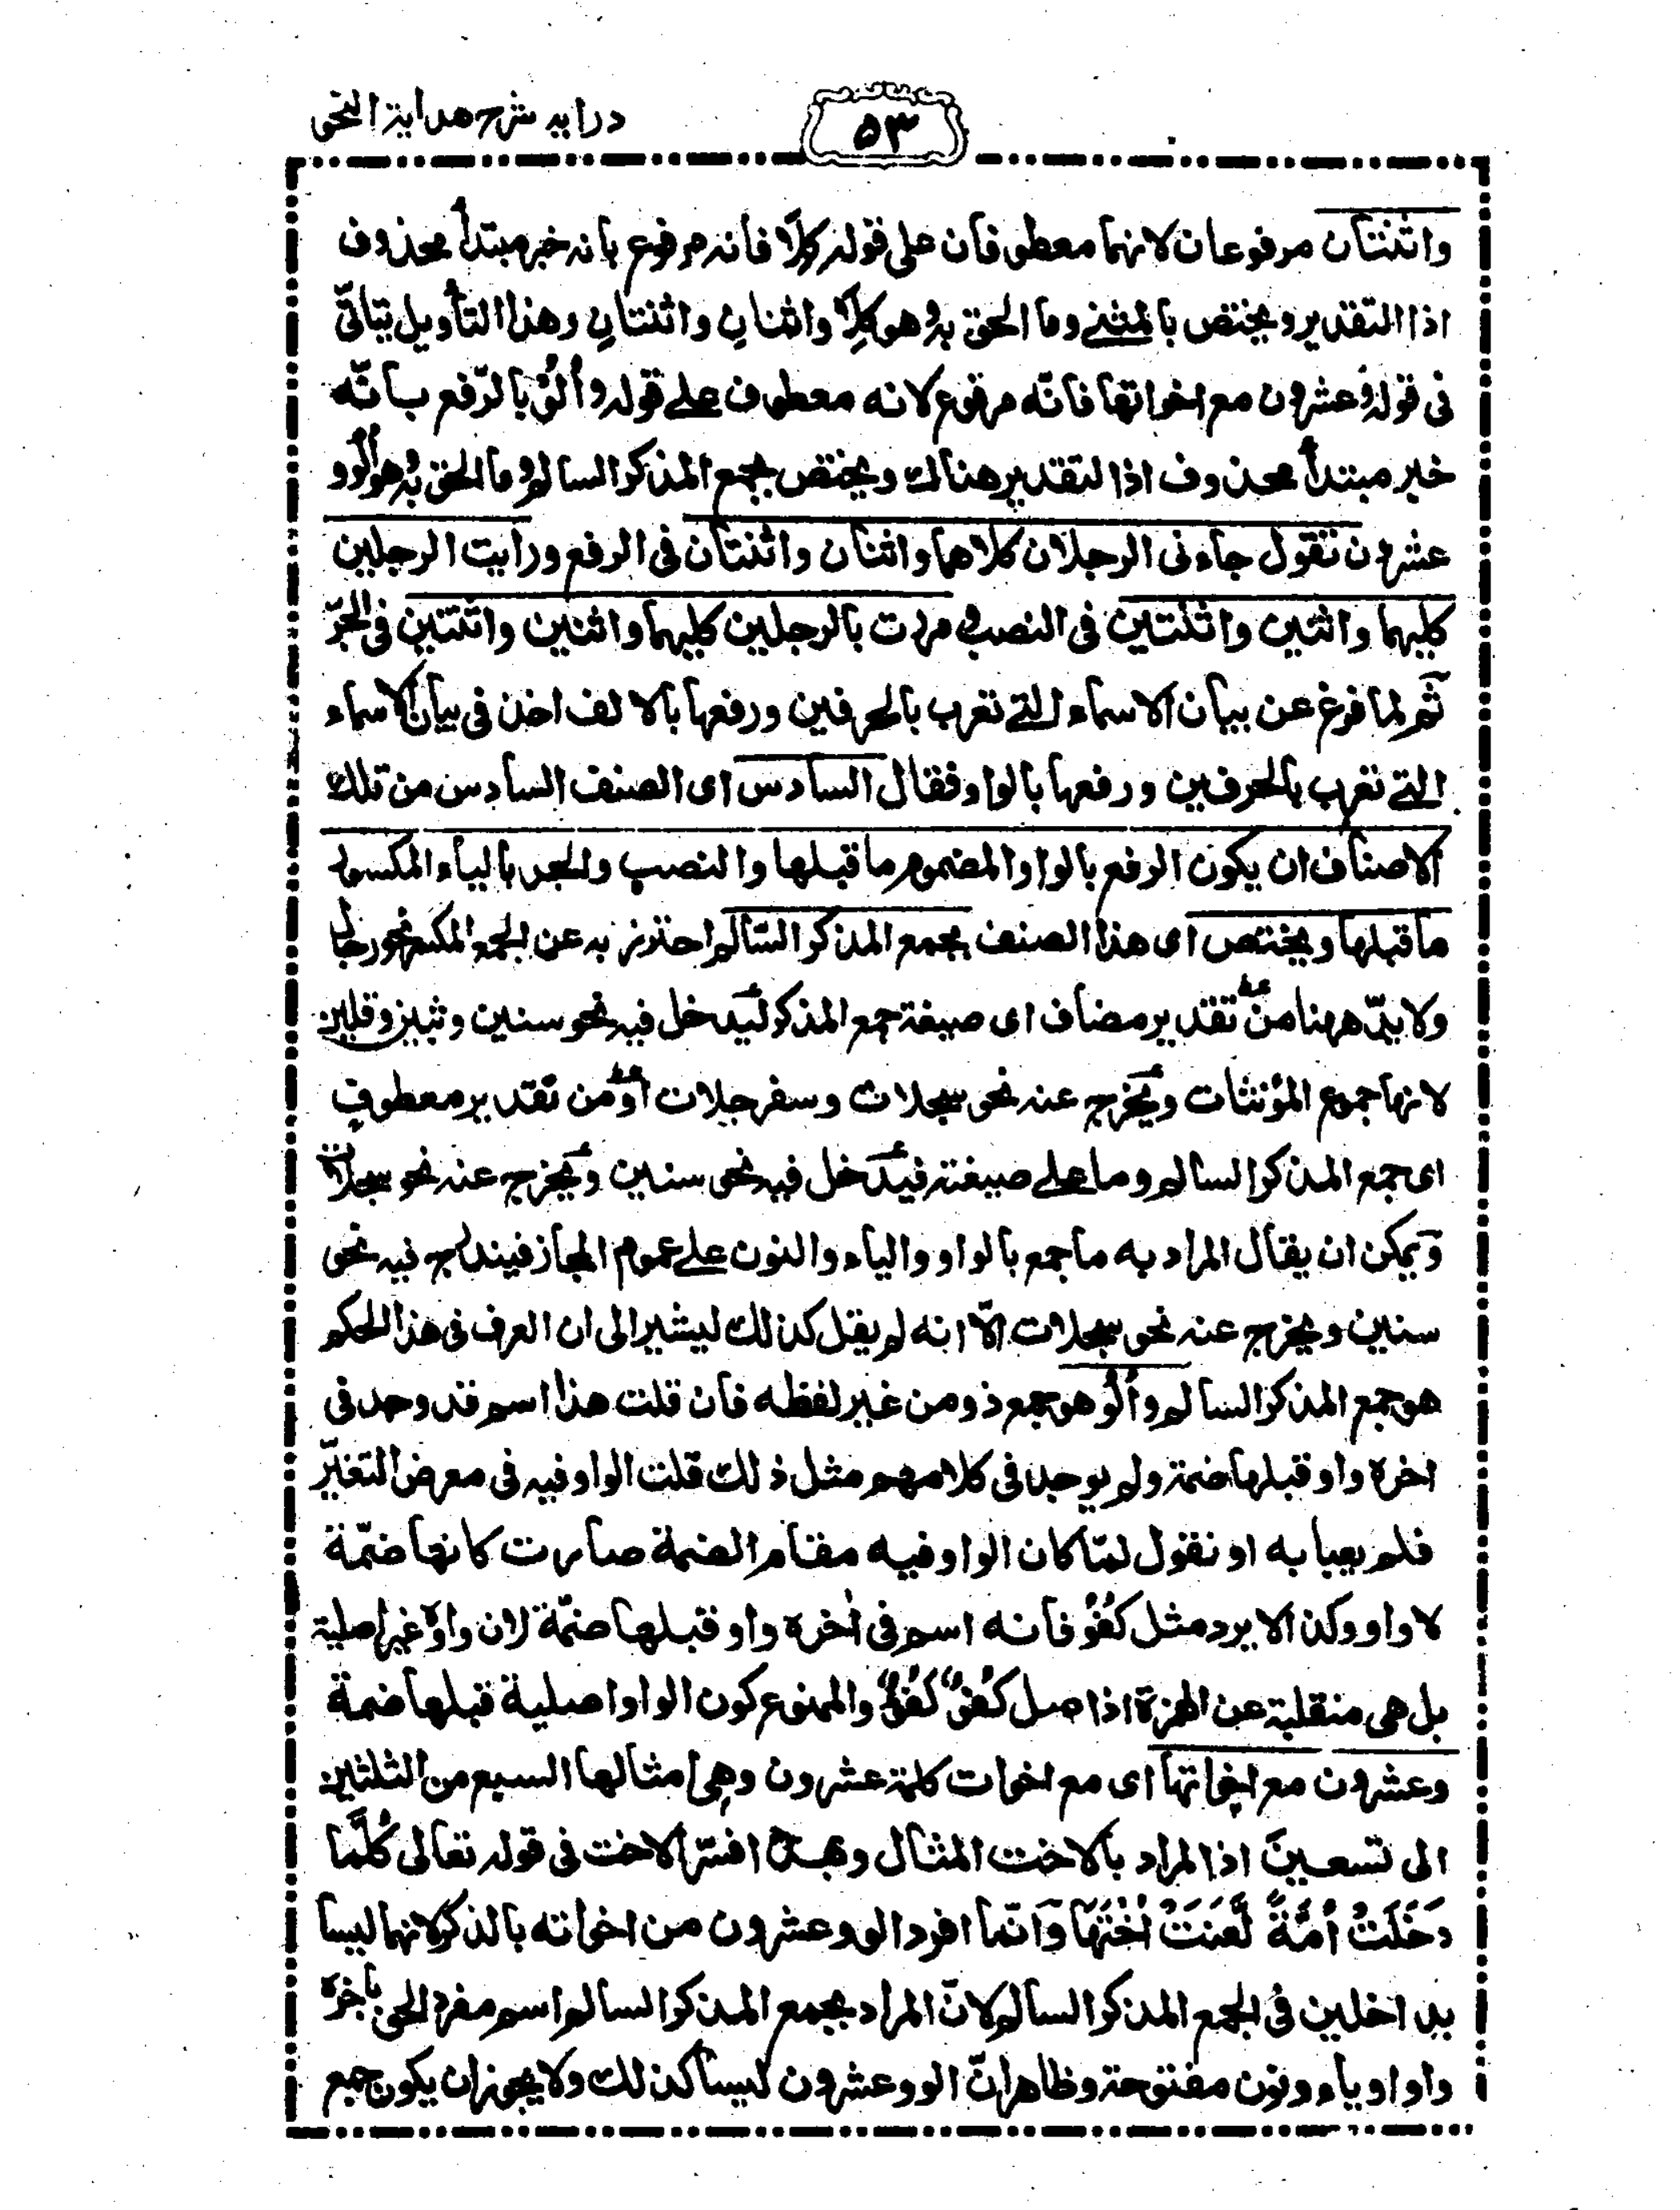 درايه شرح هداية النحو
٥٣
واثنتان مرفوعان لانهما معطوفان على قوله كلا فانه مرفوع بانه خبر مبتدأ محذوف
اذا التقدير ويختص بالمثنے وما الحق به وهو كلا واثنان واثنتان وهذا التأويل يتاتى
فى قوله وعشرون مع اخواتها فانّه مرفوع لانه معطوف علے قوله وألو بالرّفع بانّه
خبر مبتدأ محذوف اذا لتقدير هناك ويختص بجمع المذكر السالم وما الحق به وهو ألوو
عشرون تقول جاءنى الرجلان كلاهما واثنان واثنتان فى الرفع ورأيت الرجلين
كليهما واثنين واثنتين فى النصب ومررت بالرجلين كليهما واثنين واثنتين فى الجرّ
ثم لما فرغ عن بيان الاسماء التے تعرب بالحرفين ورفعها بالالف اخذ فى بيان الاسماء
التے تعرب بالحرفين ورفعها بالواو فقال السادس اى الصنف السادس من تلك
الاصناف ان يكون الرفع بالواو المضموم ما قبلها والنصب والجر بالياء المكسور
ما قبلها ويختص اى هذا الصنف بجمع المذكر السّالم احترز به عن الجمع المكسر نحو رجال
ولا بدّ ههنا من تقدير مضاف اى صيغة جمع المذكر ليدخل فيه نحو سنين وثبين وقلين
لانها جموع المؤنثات ويخرج عنه نحو سجلات وسفرجلات او من تقدير معطوف
اى جمع المذكر السالم وما علے صيغته فيدخل فيه نحو سنين ويخرج عنه نحو سجلات
ويمكن ان يقال المراد به ما جمع بالواو والياء والنون علے عموم المجاز فيندرج فيه نحو
سنين ويخرج عنه نحو سجلات الّا انه لم يقل كذلك ليشير الى ان العرف فى هذا الحكم
هو جمع المذكر السالم وألو هو جمع ذو من غير لفظه فان قلت هذا اسم قد وجد فى
اخره واو قبلها ضمة ولم يوجد فى كلامهم مثل ذلك قلت الواو فيه فى معرض التغيّر
فلم يعبا به او نقول لمّا كان الواو فيه مقام الضمة صارت كانها ضمّة
لا واو وكذا لا يرد مثل كفو فانه اسم فى أخره واو قبلها ضمّة لان واوه غير اصلية
بل هى منقلبة عن الهمزة اذا صل كفو كفؤ والممنوع كون الواو اصلية قبلها ضمة
وعشرون مع اخواتها اى مع اخوات كلمة عشرون وهى امثالها السبع من الثلثين
الى تسعين اذا المراد بالاخت المثال وبهذا افسّر الاخت فى قوله تعالى كُلَّمَا
دَخَلَتْ أُمَّةٌ لَّعَنَتْ أُخْتَهَا وَانّما افرد الو وعشرون من اخواته بالذكر لانهما ليسا
بداخلين فى الجمع المذكر السالم لانّ المراد بجمع المذكر السالم اسم مفرد الحق بأخره
واو او ياء ونون مفتوحة وظاهر انّ الو وعشرون ليسا كذلك ولا يجوز ان يكون جمع